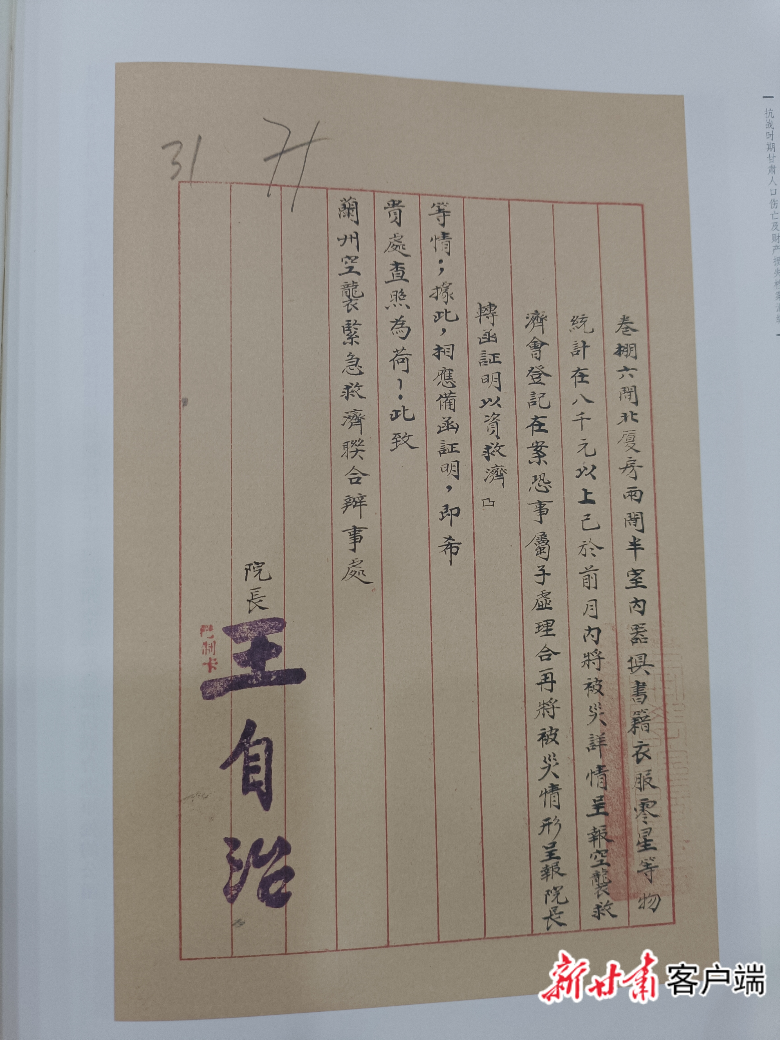 31
卷棚六间北廈房兩间半室内器俱書籍衣服零星等物
統計在八千元以上已於前月内將被災詳情呈報空襲救
濟會登記在案恐事屬子虛理合再將被災情形呈報院長
轉函証明以資救濟
等情；據此，相應備函証明，即希
貴處查照為荷！此致
蘭州空襲緊急救濟聯合辦事處
院長 王自治
抗战时期甘肃人口伤亡及财产损失
新甘肃 客户端